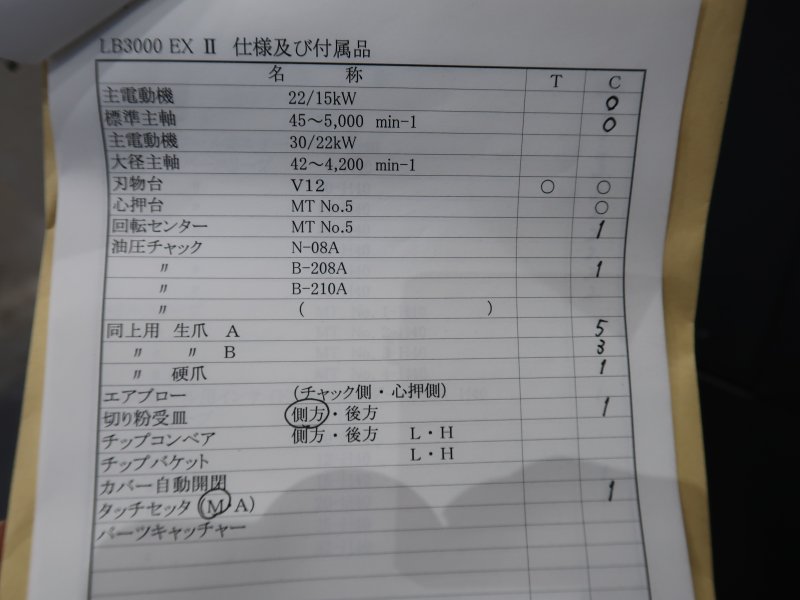 LB3000 EX Ⅱ 仕様及び付属品
名 称 T C
主電動機 22/15kW ○
標準主軸 45～5,000 min-1 ○
主電動機 30/22kW
大径主軸 42～4,200 min-1
刃物台 V12 ○ ○
心押台 MT No.5 ○
回転センター MT No.5 1
油圧チャック N-08A
〃 B-208A 1
〃 B-210A
〃 ( )
同上用 生爪 A 5
〃 〃 B 3
〃 硬爪 1
エアブロー (チャック側・心押側)
切り粉受皿 側方・後方 1
チップコンベア 側方・後方 L・H
チップバケット L・H
カバー自動開閉
タッチセッタ (M・A) 1
パーツキャッチャー